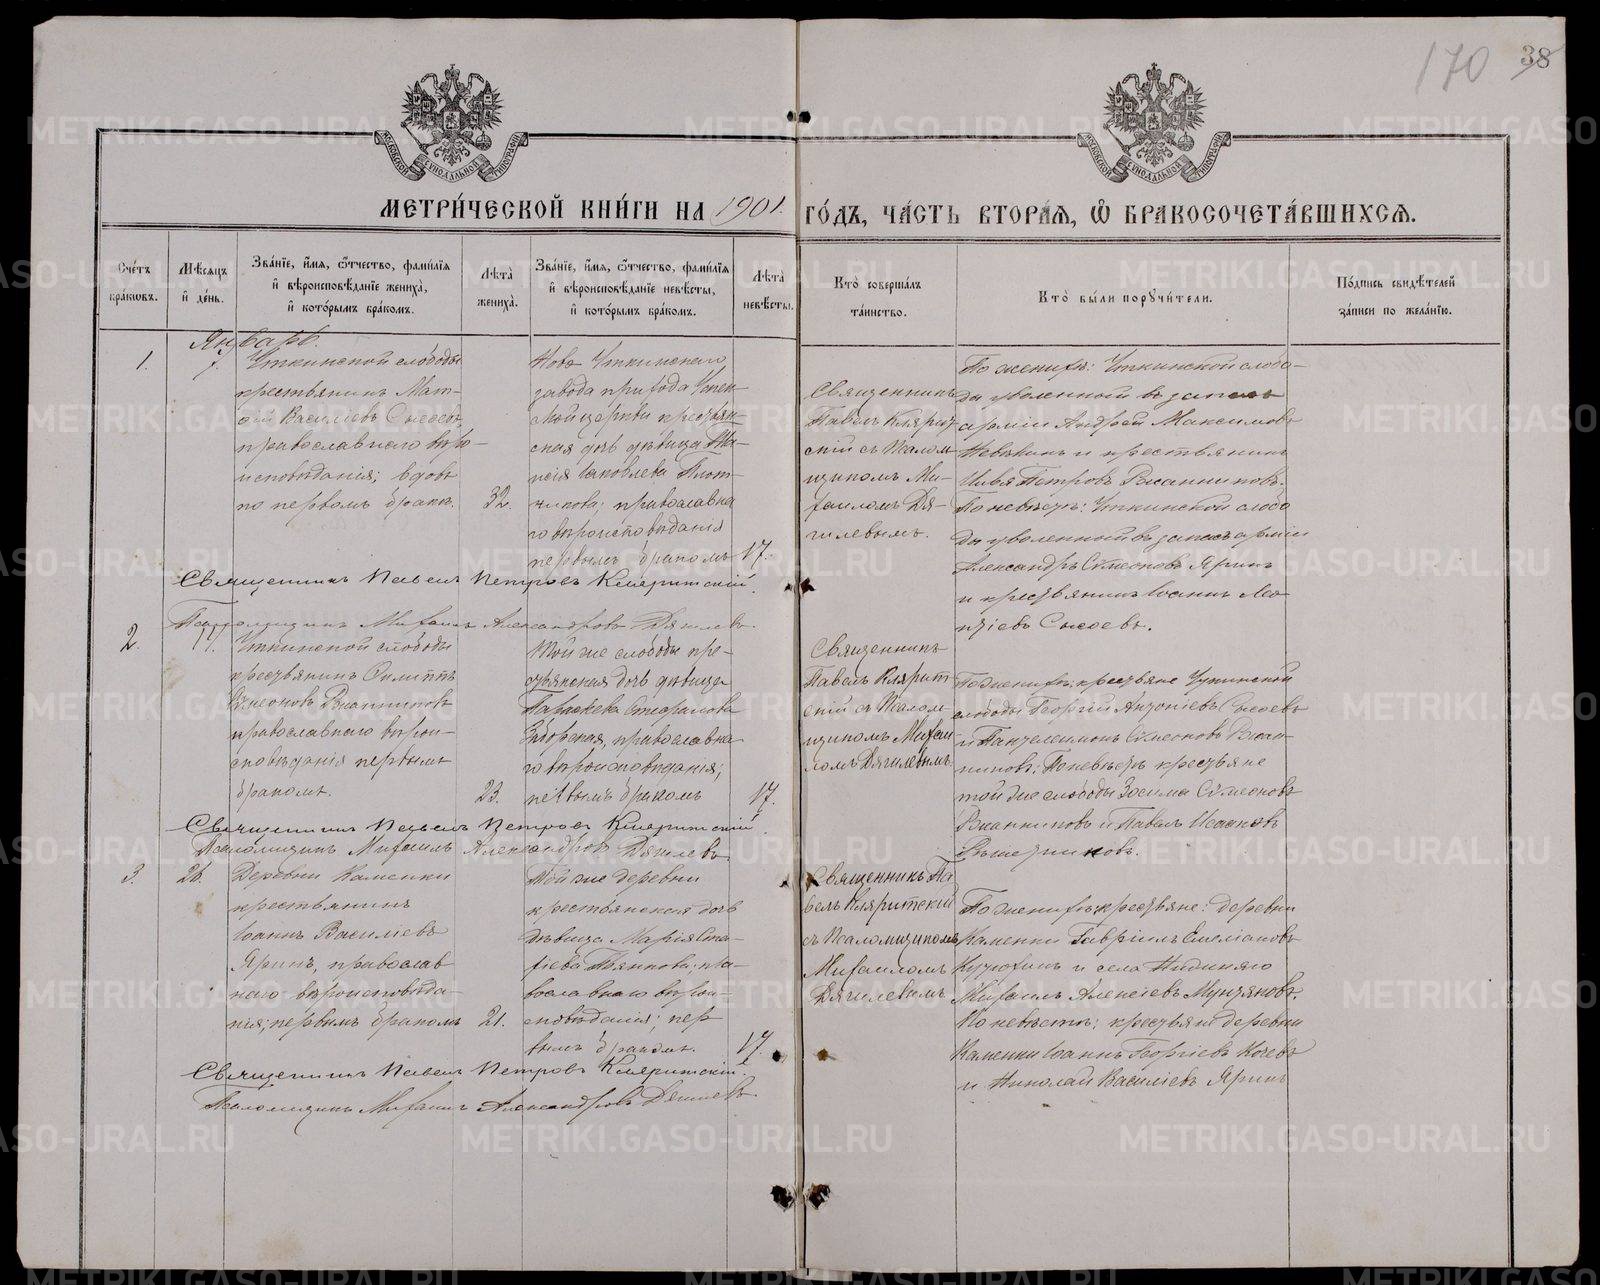 170 38
МОСКОВСКОЙ СѴНОДАЛЬНОЙ ТИПОГРАФІИ
МОСКОВСКОЙ СѴНОДАЛЬНОЙ ТИПОГРАФІИ
МЕТРИ́ЧЕСКОЙ КНИ́ГИ НА 1901. ГО́ДЪ, ЧА́СТЬ ВТОРА́Ѧ, Ѽ БРАКОСОЧЕТА́ВШИХСѦ.
Сче́тъ бра́кѡвъ.
Мѣ́сѧцъ и҆ де́нь.
Зва́нїе, и҆́мѧ, ѻ҆́тчество, фами́лїѧ
и҆ вѣроисповѣ́данїе жениха̀,
и҆ кото́рымъ бра́комъ.
Лѣта̀ жениха̀.
Зва́нїе, и҆́мѧ, ѻ҆́тчество, фами́лїѧ
и҆ вѣроисповѣ́данїе невѣ́сты,
и҆ кото́рымъ бра́комъ.
Лѣта̀ невѣ́сты.
Кто̀ соверша́лъ та́инство.
Кто̀ бы́ли порꙋчи́тели.
По́дпись свидѣ́телей за́писи по жела́нїю.
Январь.
1.
7.
Уткинской слободы
крестьянинъ Мат-
Василіевъ Сысоевъ,
православнаго вѣро-
исповѣданія; вдовъ
по первомъ бракѣ.
32.
Ново Уткинскаго
завода прихода Успен-
ской церкви крестьян-
ская дочь дѣвица
Іаковлева Плот-
никова; православна
го вѣроисповѣданія
первымъ бракомъ
17.
Священникъ
Павелъ Кляритскій
съ Псалом-
щикомъ Ми-
хаиломъ Дя-
гилевымъ.
По женихѣ: Уткинской слобо-
ды уволенный въ запасъ
арміи Андрей Максимовъ
и крестьянинъ
Илья Петровъ
По невѣстѣ: Уткинской слобо
ды уволенный въ запасъ арміи
Александръ Симеоновъ Яринъ
и крестьянинъ Іоаннъ
Сысоевъ.
Священникъ Павелъ Петровъ Кляритскій.
Псаломщикъ Михаилъ Александровъ Дягилевъ.
2.
17.
Уткинской слободы
крестьянинъ Филиппъ
Симеоновъ
православнаго вѣрои-
сповѣданія первымъ
бракомъ.
23.
Той же слободы кре-
стьянская дочь дѣвица
Параскева Стефанова
православна
го вѣроисповѣданія;
первымъ бракомъ
17.
Священникъ
Павелъ Клярит
скій съ Псалом
щикомъ Михаи
ломъ Дягилевымъ.
По женихѣ: крестьяне Уткинской
слободы Георгій Антоніевъ Сысоевъ
и Пантелеимонъ Симеоновъ
По невѣстѣ крестьяне
той же слободы Зосима Симеоновъ
и Павелъ Исааковъ
Священникъ Павелъ Петровъ Кляритскій
Псаломщикъ Михаилъ Александровъ Дягилевъ
3.
26.
Деревни Каменки
крестьянинъ
Іоаннъ Василіевъ
Яринъ, православ
наго вѣроисповѣда-
нія; первымъ бракомъ
21.
Той же деревни
крестьянская дочь
дѣвица Марія
пра-
вославнаго вѣрои-
сповѣданія; пер
вымъ бракомъ.
17.
Священникъ Па
велъ Кляритскій
съ Псаломщикомъ
Михаиломъ
Дягилевымъ
По женихѣ крестьяне: деревни
Каменки Гавріилъ Емеліановъ
и села
Михаилъ Алексіевъ
По невѣстѣ: крестьяне деревни
Каменки Іоаннъ Георгіевъ
и Николай Василіевъ Яринъ
Священникъ Павелъ Петровъ Кляритскій.
Псаломщикъ Михаилъ Александровъ Дягилевъ.
METRIKI.GASO-URAL.RU